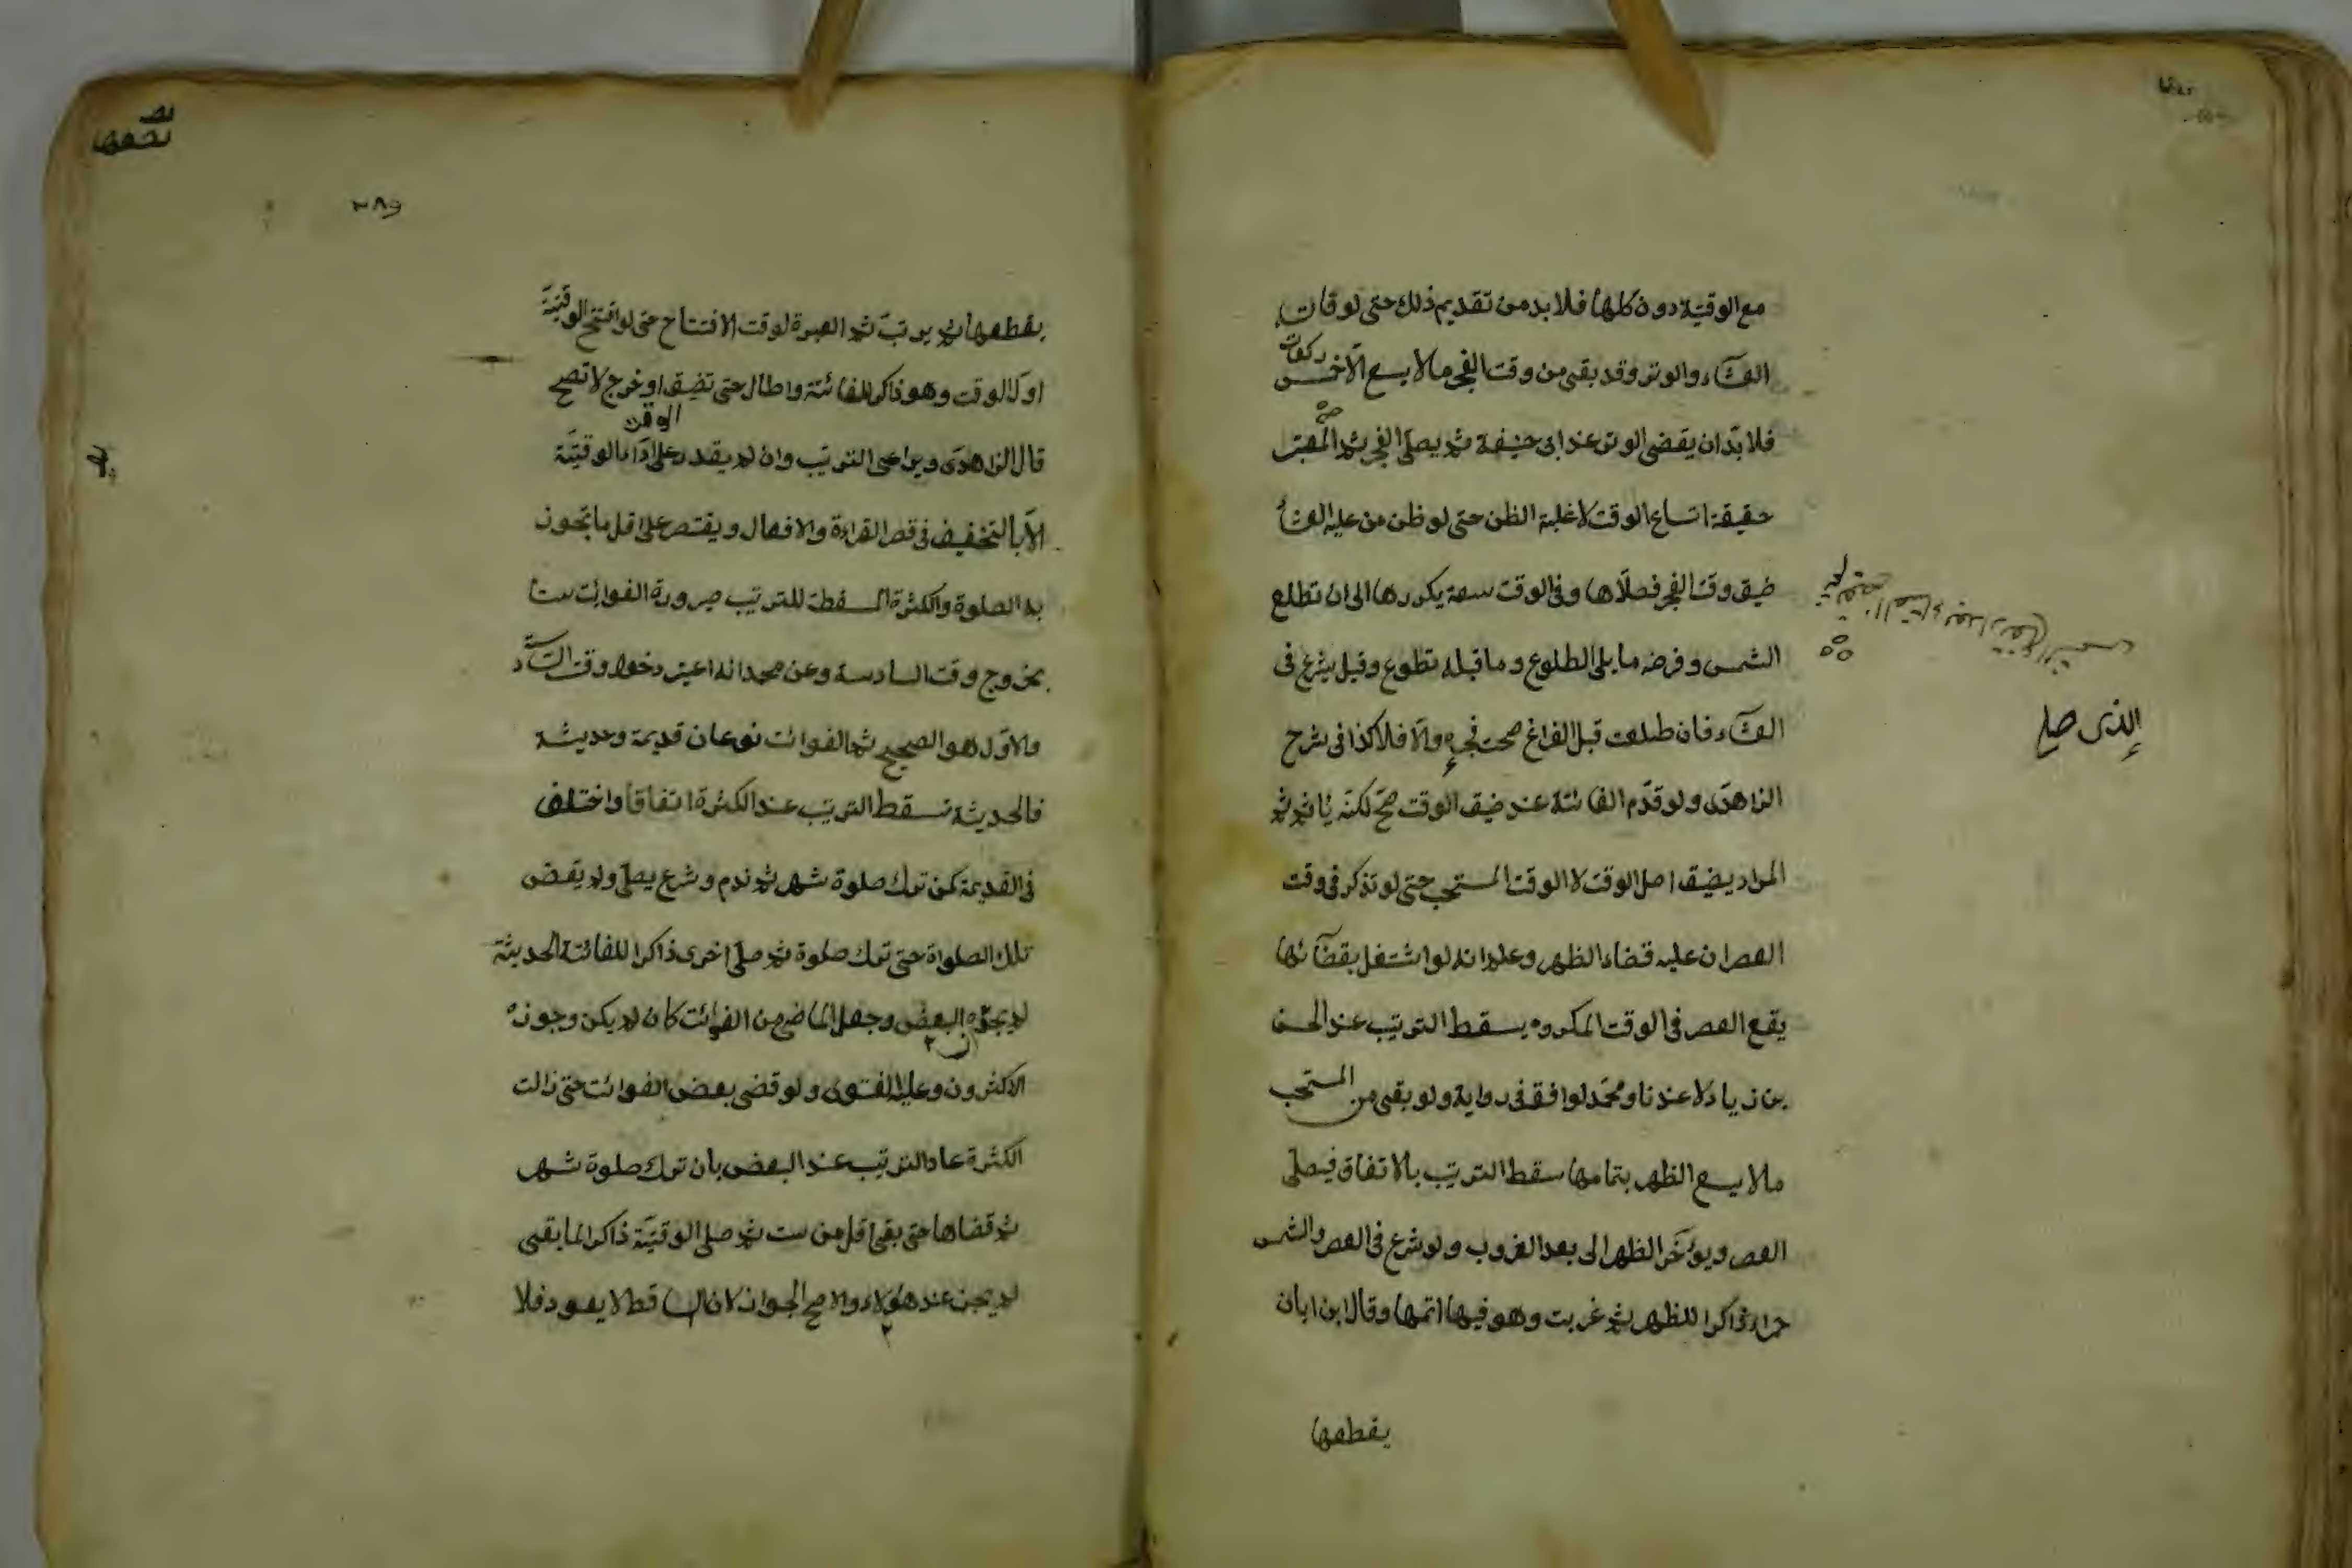 مع الوقتيّة دون كلها فلا بد من تقديم ذلك حتى لو فات
العشاء والوتر وقد بقى من وقت الفجر ما لا يسع الا خمس ركعات
فلا بدّ ان يقضى الوتر عند ابى حنيفة ثم يصلّى الفجر ثم المعتبر
حقيقة اتساع الوقت لا غلبة الظن حتى لو ظن من عليه العشاء
ضيق وقت الفجر فصلّاها وفى الوقت سعة يكررها الى ان تطلع
الشمس وفرضه ما يلى الطلوع وما قبله تطوع وقيل يشرع فى
العشاء فان طلعت قبل الفراغ صحت فجره والّا فلا كذا فى شرح
الزاهدى ولو قدّم الفائتة عند ضيق الوقت صحّ لكنّه يأثم ثم
المراد بضيق اصل الوقت لا الوقت المستحب حتى لو تذكر فى وقت
العصر ان عليه قضاء الظهر وعلم انه لو اشتغل بقضائها
يقع العصر فى الوقت المكروه يسقط الترتيب عند الحسن
بن زياد لا عندنا ومحمّد لوافق فى رواية ولو بقى من المستحب
ما لا يسع الظهر بتمامها سقط الترتيب بالاتفاق فيصلّى
العصر ويؤخّر الظهر الى بعد الغروب ولو شرع فى العصر والشمس
حمراء ذاكرا للظهر ثم غربت وهو فيها اتمها وقال ابن ابان
يقطعها
الذى صلى
٣٨٩
يقطعها ثم يرتبّ ثم العبرة لوقت الافتتاح حتى لو افتتح الوقتيّة
اول الوقت وهو ذاكر للفائتة واطال حتى تضيق او خرج لا تصح
الوقت
قال الزاهدى ويراعى الترتيب وان لم يقدر على اداء الوقتيّة
الّا بالتخفيف فى قصر القراءة والافعال ويقتصر على اقل ما تجوز
به الصلوة والكثرة المسقطة للترتيب صيرورة الفوائت ستا
بخروج وقت السادسة وعن محمد انه اعتبر دخول وقت السادسة
والاوّل هو الصحيح ثم الفوائت نوعان قديمة وحديثة
فالحديثة تسقط الترتيب عند الكثرة اتفاقا واختلف
فى القديمة كمن ترك صلوة شهر ثم ندم وشرع يصلّى ولم يقض
تلك الصلواة حتى ترك صلوة ثم صلّى اخرى ذاكرا للفائتة الحديثة
لم يجوّزه البعض وجعل الماضى من الفوائت كان لم يكن وجوزه
الاكثرون وعليه الفتوى ولو قضى بعض الفوائت حتى زالت
الكثرة عاد الترتيب عند البعض بان ترك صلوة شهر
ثم قضاها حتى بقى اقل من ست ثم صلى الوقتيّة ذاكرا لما بقى
لم يجز عند هؤلاء والاصح الجواز لان الساقط لا يعود فلا